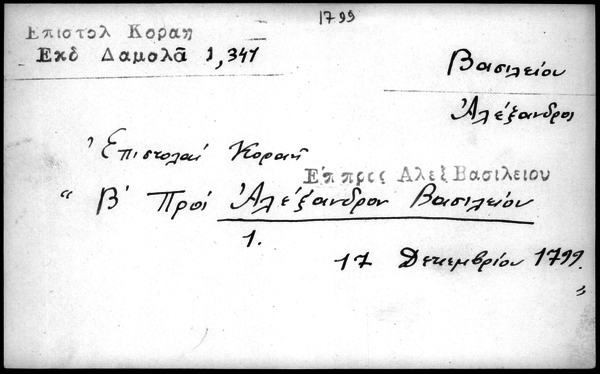 1799
Επιστολ Κοραη
Εκδ Δαμολᾶ 1,341
Βασιλείου
Ἀλέξανδρος
Ἐπιστολαί Κοραῆ
Επ προς Αλεξ Βασιλειου
“ Β' Πρός Ἀλέξανδρον Βασιλείου
1.
17 Δεκεμβρίου 1799.
„